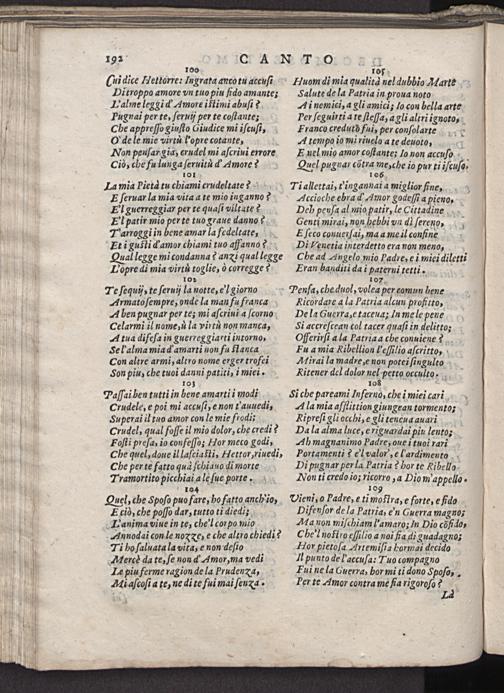 192
CANTO
100
Cui dice Hettorre: Ingrata anco tu accusi
Di troppo amore vn tuo piu fido amante;
L'alme leggi d'Amore istimi abusi?
Pugnai per te, seruij per te costante;
Che appresso giusto Giudice mi iscusi,
O' de le mie virtù l'opre cotante,
Non pensar già, crudel mi ascriui errore
Ciò, che fu lunga seruitù d'Amore?
101
La mia Pietà tu chiami crudeltate?
E seruar la mia vita a te mio inganno?
E'l guerreggiar per te quasi viltate?
E'l patir mio per te tuo graue danno?
T'arroggi in bene amar la fedeltate,
Et i gusti d'amor chiami tuo affanno?
Qual legge mi condanna? anzi qual legge
L'opre di mia virtù toglie, ò corregge?
102
Te sequij, te seruij la notte, e'l giorno
Armato sempre, onde la man fu franca
A ben pugnar per te; mi ascriui a scorno
Celarmi il nome, ù la virtù non manca,
A tua difesa in guerreggiarti intorno.
Se l'alma mia d'amarti non fu stanca
Con altre armi, altro nome erger trofei
Son piu, che tuoi danni patiti, i miei.
103
Passai ben tutti in bene amarti i modi
Crudele, e poi mi accusi, e non t'auuedi,
Superai il tuo amor con le mie frodi:
Crudel, qual fosse il mio dolor, che credi?
Fosti presa, io confesso; Hor meco godi,
Che quel, doue il lasciasti, Hettor, riuedi,
Che per te fatto quà schiauo di morte
Tramortito picchiai a le sue porte.
104
Quel, che Sposo puo fare, hò fatto anch'io,
E ciò, che posso dar, tutto ti diedi;
L'anima viue in te, che'l corpo mio
Annodai con le nozze, e che altro chiedi?
Ti hò saluata la vita, e non desio
Mercè da te, se non d'Amor, ma vedi
Le piu ferme ragion de la Prudenza,
Mi ascosi a te, ne di te fui mai senza.
105
Huom di mia qualità nel dubbio Marte
Salute de la Patria in proua noto
A i nemici, a gli amici; Io con bella arte
Per seguirti a te stessa, a gli altri ignoto,
Franco creduto fui, per consolarte
A tempo io mi riuelo a te deuoto,
E nel mio amor costante; Io non accuso
Quel pugnar cōtra me, che io pur ti iscuso.
106
Ti allettai, t'ingannai a miglior fine,
Accioche ebra d'Amor godessi a pieno,
Deh pensa al mio patir, le Cittadine
Genti mirai, non hebbi vn dì sereno,
E seco conuersai, ma a me il confine
Di Venetia interdetto era non meno,
Che ad Angelo mio Padre, e i miei diletti
Eran banditi da i paterni tetti.
107
Pensa, che duol, volea per comun bene
Ricordare a la Patria alcun profitto,
De la Guerra, e tacena; In me le pene
Si accrescean col tacer quasi in delitto;
Offerirsi a la Patria a che conuiene?
Fu a mia Ribellion l'essilio ascritto,
Mirai la madre, e non potei singulto
Ritener del dolor nel petto occulto.
108
Si che pareami Inferno, che i miei cari
A la mia afflittion giungean tormento;
Ripresi gli occhi, e gli tenena auari
Da la alma luce, e riguardai più lento;
Ah magnanimo Padre, oue i tuoi rari
Portamenti? e'l valor, e l'ardimento
Di pugnar per la Patria? hor te Ribello
Non ti credo io; ricorro, a Dio m'appello.
109
Vieni, o Padre, e ti mostra, e forte, e fido
Difensor de la Patria, e'n Guerra magno;
Ma non mischiam l'amaro; In Dio cōfido,
Che'l nostro essilio a noi sia di guadagno;
Hor pietosa Artemisia hormai decido
Il punto de l'accusa: Tuo compagno
Fui ne la Guerra, hor mi ti dono Sposo,
Per te Amor contra me fia rigoroso?
Là